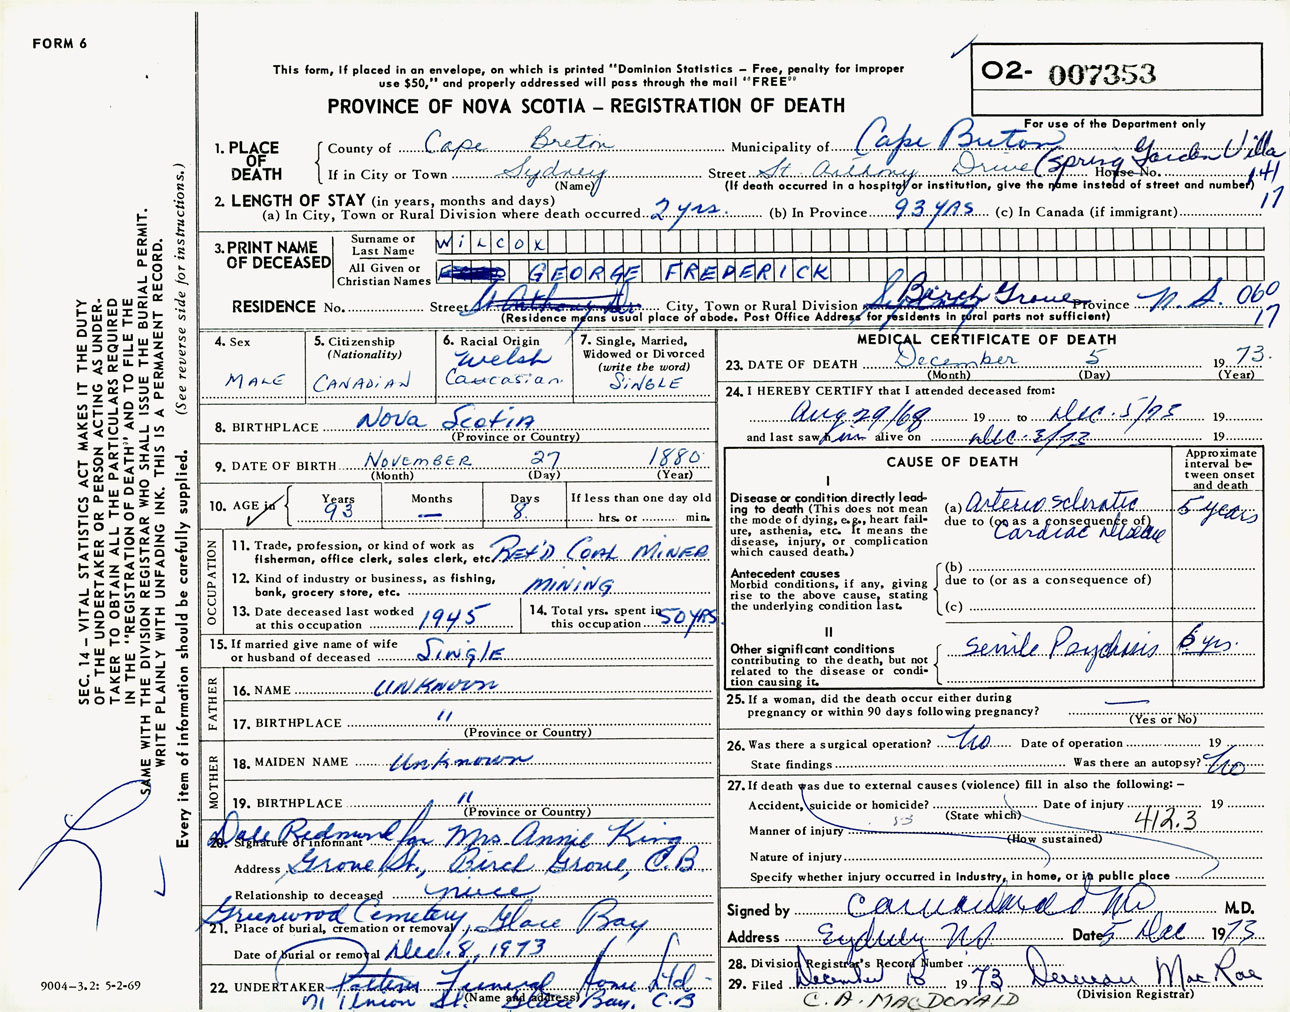 FORM 6
This form, if placed in an envelope, on which is printed "Dominion Statistics – Free, penalty for improper
use $50," and properly addressed will pass through the mail "FREE"
O2- 007353
For use of the Department only
PROVINCE OF NOVA SCOTIA – REGISTRATION OF DEATH
SEC. 14 – VITAL STATISTICS ACT MAKES IT THE DUTY
OF THE UNDERTAKER OR PERSON ACTING AS UNDER-
TAKER TO OBTAIN ALL THE PARTICULARS REQUIRED
IN THE "REGISTRATION OF DEATH" AND TO FILE THE
SAME WITH THE DIVISION REGISTRAR WHO SHALL ISSUE THE BURIAL PERMIT.
WRITE PLAINLY WITH UNFADING INK. THIS IS A PERMANENT RECORD.
Every item of information should be carefully supplied. (See reverse side for instructions.)
1. PLACE OF DEATH County of Cape Breton Municipality of Cape Breton
If in City or Town Sydney Street St. Anthony Drive (Spring Garden Villa House No. 141
(Name) (If death occurred in a hospital or institution, give the name instead of street and number)
17
2. LENGTH OF STAY (in years, months and days)
(a) In City, Town or Rural Division where death occurred 2 yrs. (b) In Province 93 YRS (c) In Canada (if immigrant)
3. PRINT NAME OF DECEASED Surname or Last Name WILCOX
All Given or Christian Names GEORGE FREDERICK
RESIDENCE No. Street St Anthony Dr City, Town or Rural Division Sydney Birch Grove Province N.S. 060
(Residence means usual place of abode. Post Office Address for residents in rural parts not sufficient) 17
4. Sex MALE
5. Citizenship (Nationality) CANADIAN
6. Racial Origin Welsh Caucasian
7. Single, Married, Widowed or Divorced (write the word) SINGLE
8. BIRTHPLACE NOVA SCOTIA
(Province or Country)
9. DATE OF BIRTH NOVEMBER 27 1880
(Month) (Day) (Year)
10. AGE in Years 93 Months — Days 8 If less than one day old
hrs. or min.
OCCUPATION
11. Trade, profession, or kind of work as
fisherman, office clerk, sales clerk, etc. RET'D COAL MINER
12. Kind of industry or business, as fishing,
bank, grocery store, etc. MINING
13. Date deceased last worked
at this occupation 1945
14. Total yrs. spent in
this occupation 50 YRS
15. If married give name of wife
or husband of deceased SINGLE
FATHER
16. NAME UNKNOWN
17. BIRTHPLACE "
(Province or Country)
MOTHER
18. MAIDEN NAME Unknown
19. BIRTHPLACE "
(Province or Country)
20. Signature of informant Dale Redmond for Mrs. Annie King
Address Grove St., Birch Grove, C.B
Relationship to deceased niece
21. Place of burial, cremation or removal Greenwood Cemetery, Glace Bay
Date of burial or removal Dec. 8, 1973
22. UNDERTAKER Patten Funeral Home Ltd -
(Name and address) 71 Union St. Glace Bay, C.B
MEDICAL CERTIFICATE OF DEATH
23. DATE OF DEATH December 5 1973.
(Month) (Day) (Year)
24. I HEREBY CERTIFY that I attended deceased from:
Aug 29/68 19 to Dec. 5/73 19
and last saw him alive on Dec. 3/73 19
CAUSE OF DEATH
Approximate interval between onset and death
I
Disease or condition directly lead-
ing to death (This does not mean
the mode of dying, e.g., heart fail-
ure, asthenia, etc. It means the
disease, injury, or complication
which caused death.)
(a) Arteriosclerotic 5 years
due to (or as a consequence of)
Cardiac Disease
Antecedent causes
Morbid conditions, if any, giving
rise to the above cause, stating
the underlying condition last.
(b)
due to (or as a consequence of)
(c)
II
Other significant conditions
contributing to the death, but not
related to the disease or condi-
tion causing it.
Senile Psychosis 5 yrs.
25. If a woman, did the death occur either during
pregnancy or within 90 days following pregnancy? —
(Yes or No)
26. Was there a surgical operation? No Date of operation 19
State findings Was there an autopsy? No
27. If death was due to external causes (violence) fill in also the following: –
Accident, suicide or homicide? Date of injury 19
(State which)
Manner of injury 412.3
(How sustained)
Nature of injury
Specify whether injury occurred in industry, in home, or in public place
Signed by M.D.
Address Sydney NS Date 5 Dec 1973
28. Division Registrar's Record Number
29. Filed December 18 1973 MacRae
C. A. MACDONALD (Division Registrar)
9004-3.2: 5-2-69